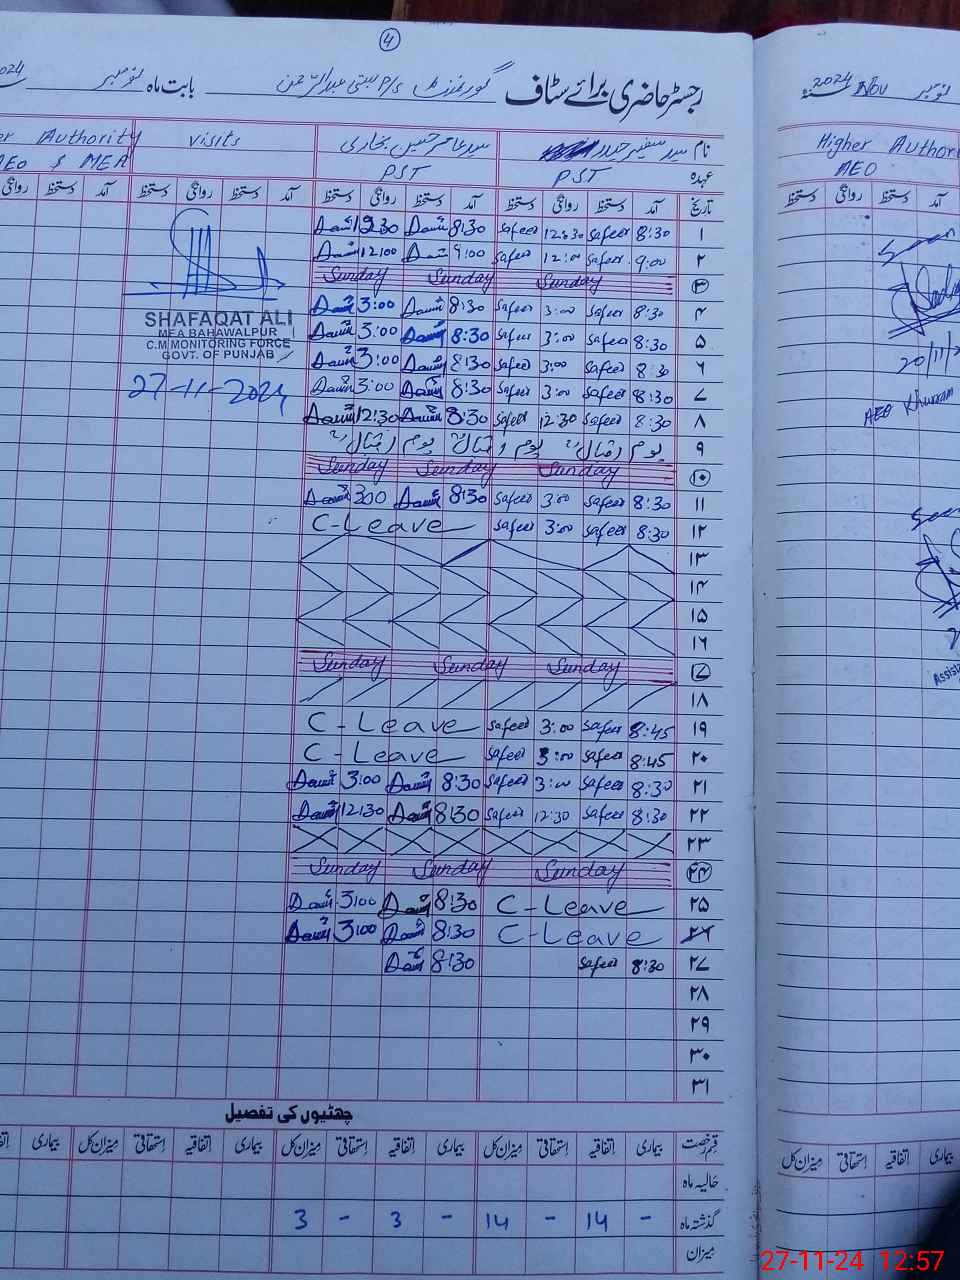 4
رجسٹر حاضری برائے سٹاف گورنمنٹ P/S بستی عبدالرحمن بابت ماہ نومبر 2024
نام سید سفیر حیدر سید عامر حسین بخاری Visits Authority
عہدہ PST PST AEO & MEA
تاریخ آمد دستخط روانگی دستخط آمد دستخط روانگی دستخط آمد دستخط روانگی دستخط آمد دستخط روانگی
۱ 8:30 Safeer 12:30 Safeer 8:30 12:30
۲ 9:00 Safeer 12:00 Safeer 9:00 12:00
۳ Sunday Sunday Sunday
۴ 8:30 Safeer 3:00 Safeer 8:30 3:00
۵ 8:30 Safeer 3:00 Safeer 8:30 3:00
۶ 8:30 Safeer 3:00 Safeer 8:30 3:00
۷ 8:30 Safeer 3:00 Safeer 8:30 3:00
۸ 8:30 Safeer 12:30 Safeer 8:30 12:30
۹ یوم اقبالؒ یوم اقبالؒ یوم اقبالؒ
۱۰ Sunday Sunday Sunday
۱۱ 8:30 Safeer 3:00 Safeer 8:30 3:00
۱۲ 8:30 Safeer 3:00 Safeer C-Leave
۱۳
۱۴
۱۵
۱۶
۱۷ Sunday Sunday Sunday
۱۸
۱۹ 8:45 Safeer 3:00 Safeer C-Leave
۲۰ 8:45 Safeer 3:00 Safeer C-Leave
۲۱ 8:30 Safeer 3:00 Safeer 8:30 3:00
۲۲ 8:30 Safeer 12:30 Safeer 8:30 12:30
۲۳
۲۴ Sunday Sunday Sunday
۲۵ C-Leave 8:30 3:00
۲۶ C-Leave 8:30 3:00
۲۷ 8:30 Safeer 8:30
۲۸
۲۹
۳۰
۳۱
SHAFAQAT ALI
MEA BAHAWALPUR
C.M MONITORING FORCE
GOVT. OF PUNJAB
27-11-2024
چھٹیوں کی تفصیل
قسم رخصت بیماری اتفاقیہ استحقاقی میزان کل بیماری اتفاقیہ استحقاقی میزان کل بیماری اتفاقیہ استحقاقی میزان کل بیماری
حالیہ ماہ
گذشتہ ماہ - 14 - 14 - 3 - 3
میزان
نومبر Nov 2024
Higher
AEO
آمد دستخط روانگی دستخط
Seen
20/11/2
AEO Khurram
Seen
Assist
بیماری اتفاقیہ استحقاقی میزان کل
27-11-24 12:57